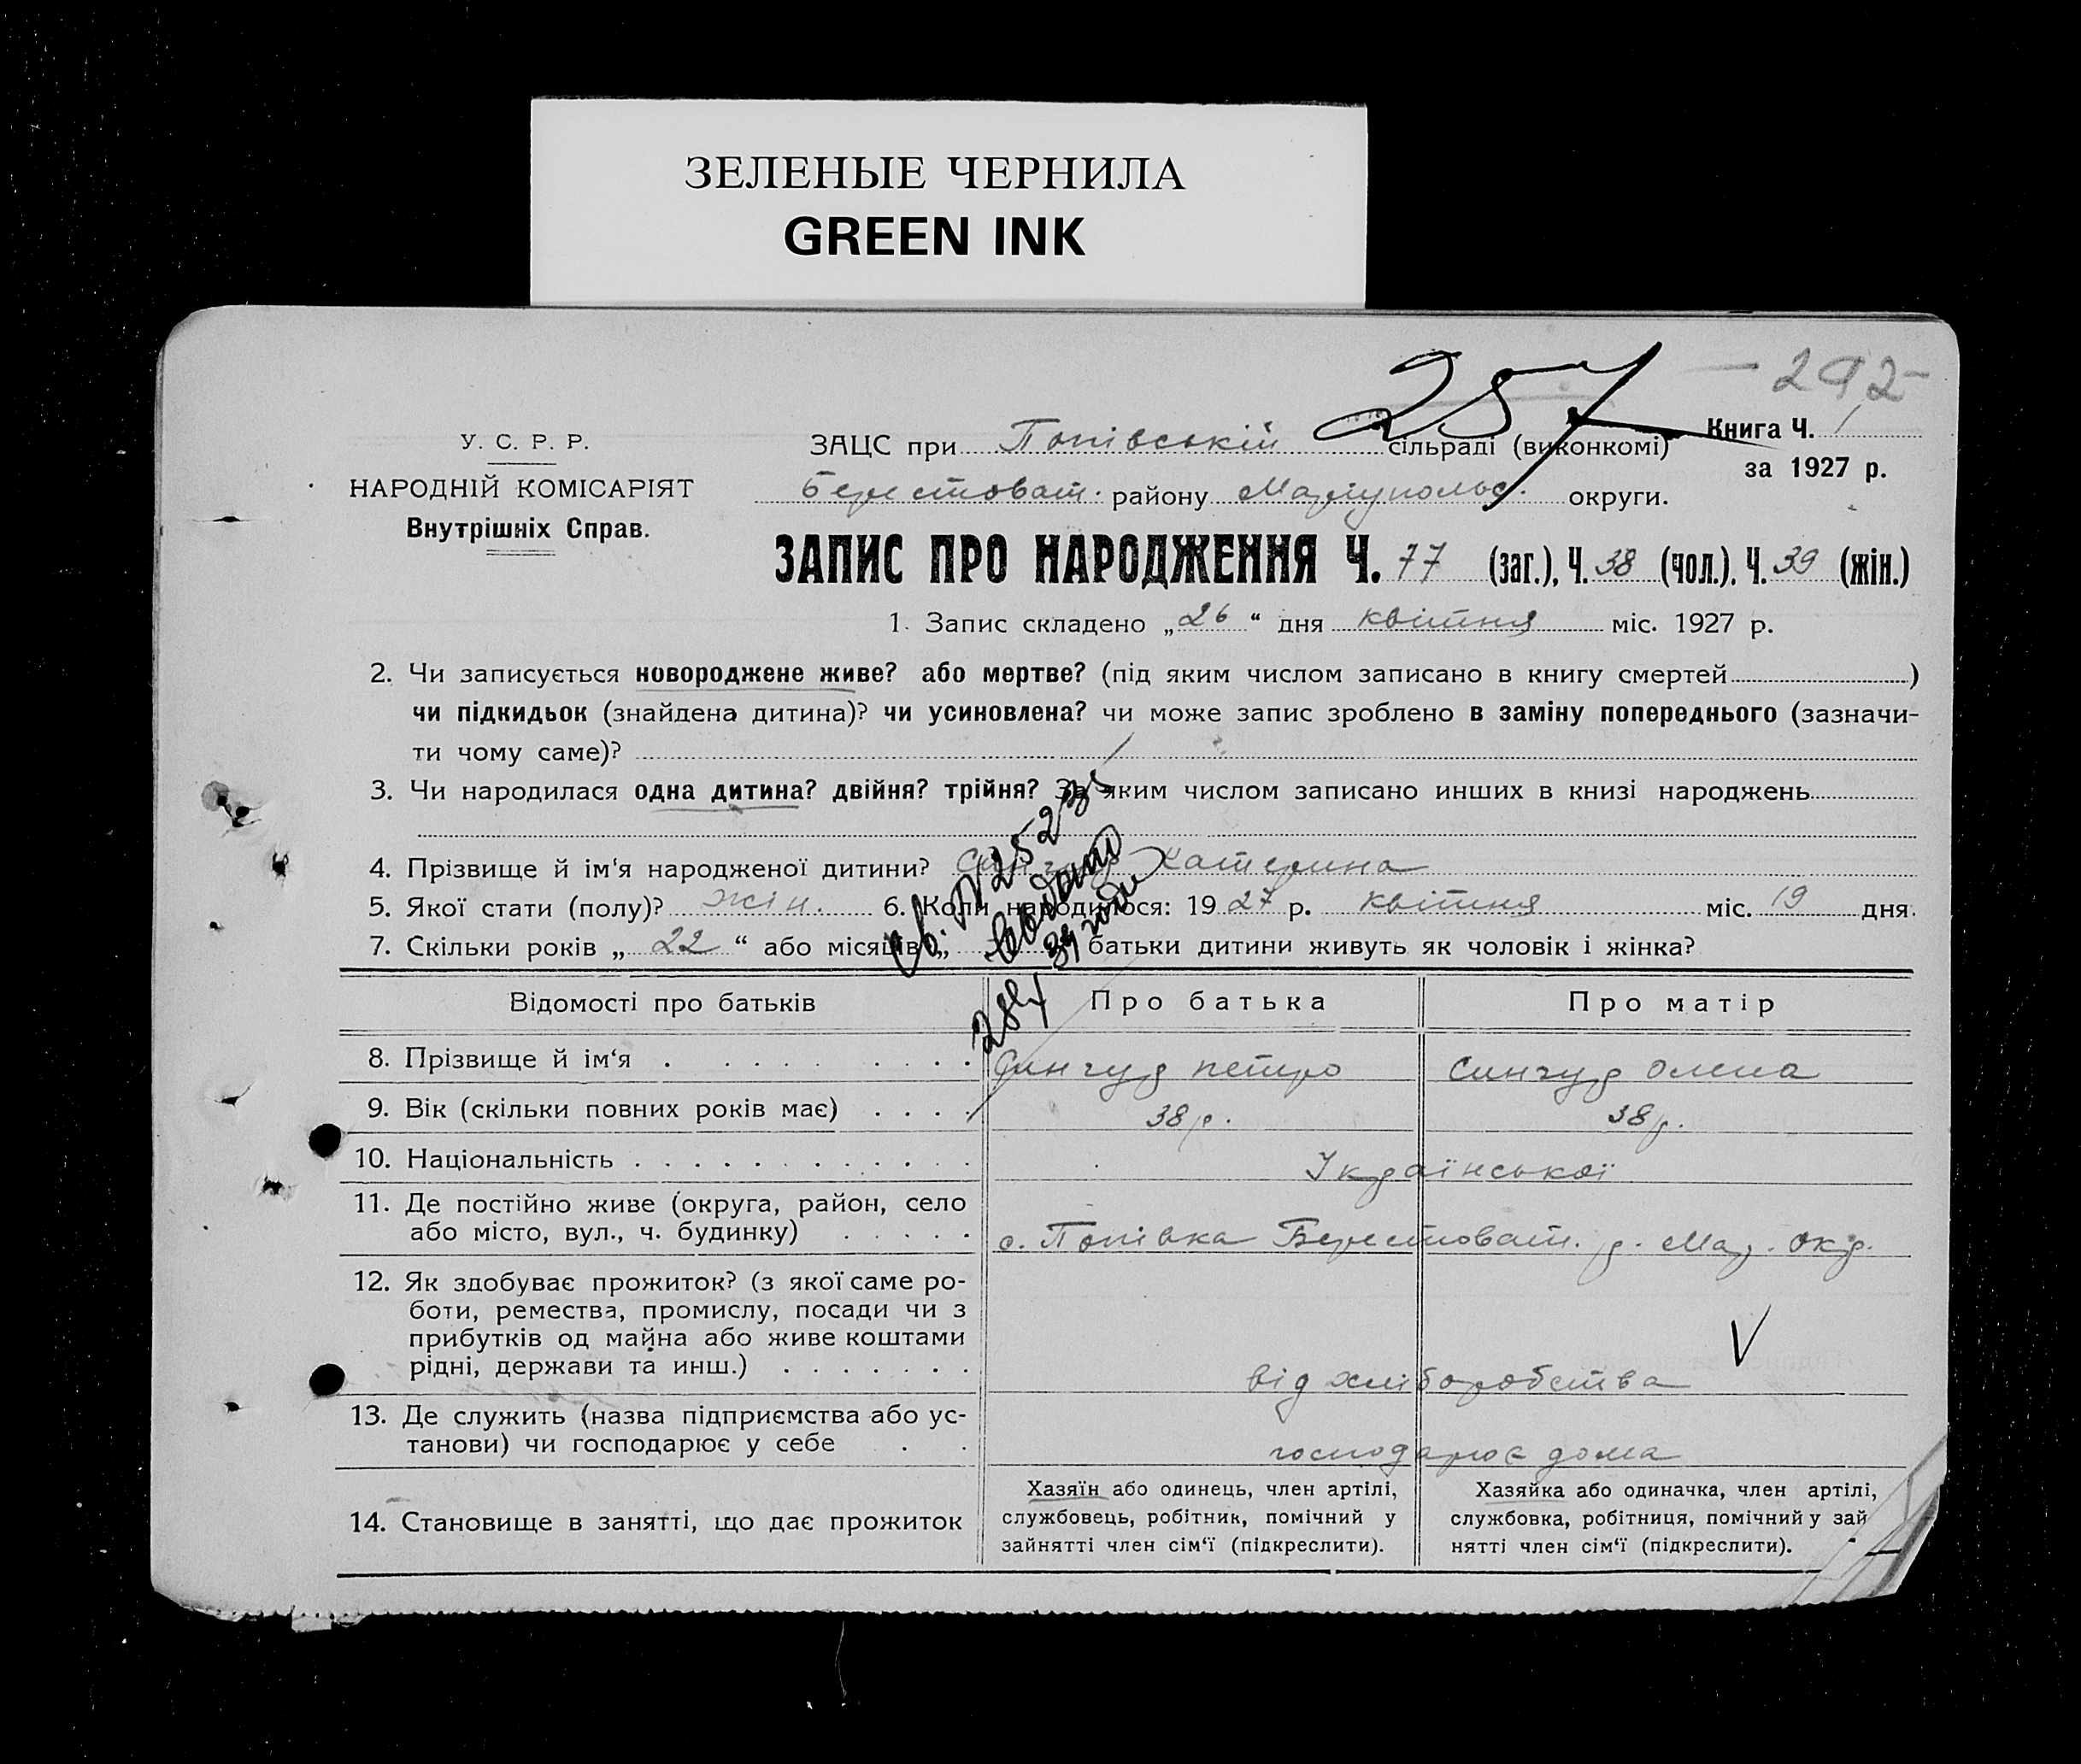 ЗЕЛЕНЫЕ ЧЕРНИЛА
GREEN INK
- 292 -
257
У. С. Р. Р.
НАРОДНІЙ КОМІСАРІЯТ
Внутрішніх Справ.
ЗАЦС при Попівській сільраді (виконкомі)
Берестоват. району Маріупольс. округи.
Книга Ч. 1
за 1927 р.
ЗАПИС ПРО НАРОДЖЕННЯ Ч. 77 (заг.), Ч. 38 (чол.), Ч. 39 (жін.)
1. Запис складено „26“ дня квітня міс. 1927 р.
2. Чи записується новороджене живе? або мертве? (під яким числом записано в книгу смертей )
чи підкидьок (знайдена дитина)? чи усиновлена? чи може запис зроблено в заміну попереднього (зазначи-
ти чому саме)?
3. Чи народилася одна дитина? двійня? трійня? За яким числом записано инших в книзі народжень
4. Прізвище й ім‘я народженої дитини? Катерина
5. Якої стати (полу)? жін. 6. Коли народилося: 1927 р. квітня міс. 19 дня.
7. Скільки років „22“ або місяців „ батьки дитини живуть як чоловік і жінка?
Відомості про батьків
Про батька
Про матір
8. Прізвище й ім‘я
Сингур петро
Сингур Олена
9. Вік (скільки повних років має)
38 р.
38 р.
10. Національність
Української
11. Де постійно живе (округа, район, село
або місто, вул., ч. будинку)
с. Попівка Берестоват. р. Мар. окр.
12. Як здобуває прожиток? (з якої саме ро-
боти, ремества, промислу, посади чи з
прибутків од майна або живе коштами
рідні, держави та инш.)
від хліборобства
13. Де служить (назва підприємства або ус-
танови) чи господарює у себе
господарює дома
14. Становище в занятті, що дає прожиток
Хазяїн або одинець, член артілі,
службовець, робітник, помічний у
зайнятті член сім‘ї (підкреслити).
Хазяйка або одиначка, член артілі,
службовка, робітниця, помічний у зай
нятті член сім‘ї (підкреслити).